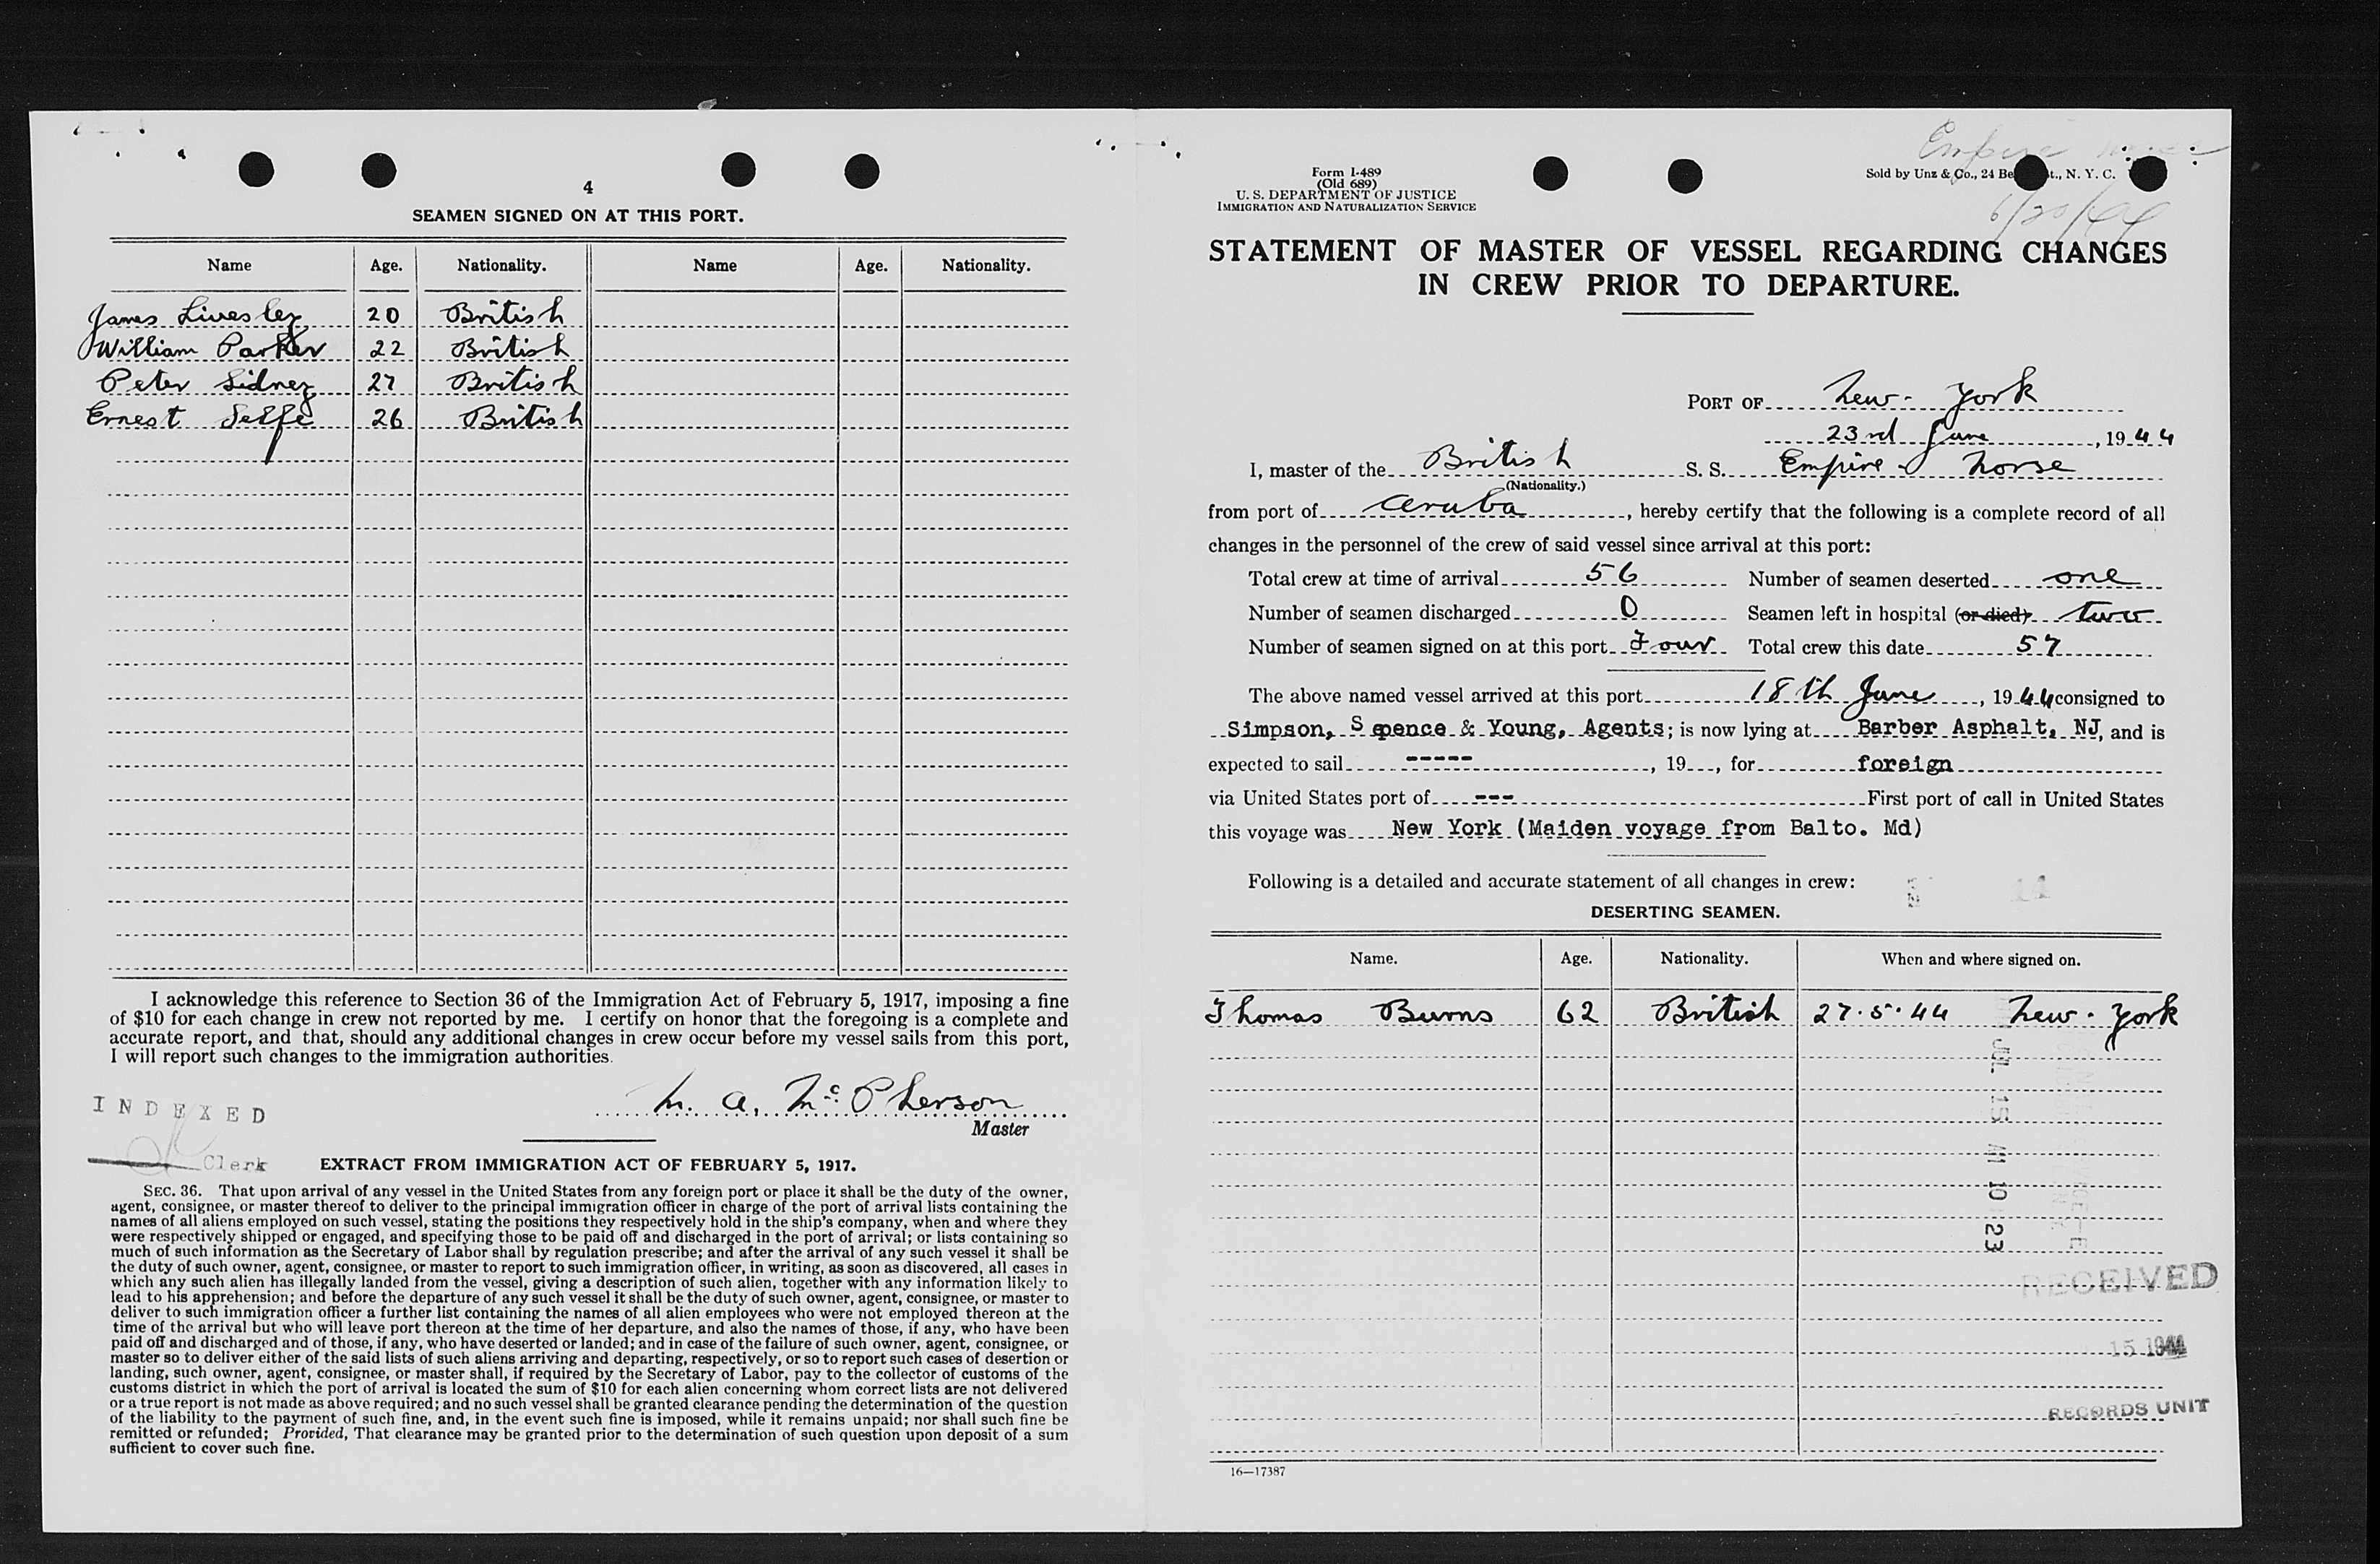 4
SEAMEN SIGNED ON AT THIS PORT.
Name Age. Nationality. Name Age. Nationality.
James Livesley 20 British
William Parker 22 British
Peter Sidney 27 British
Ernest Selfe 26 British
I acknowledge this reference to Section 36 of the Immigration Act of February 5, 1917, imposing a fine
of $10 for each change in crew not reported by me. I certify on honor that the foregoing is a complete and
accurate report, and that, should any additional changes in crew occur before my vessel sails from this port,
I will report such changes to the immigration authorities.
M. A. McPherson
Master
INDEXED
Clerk
EXTRACT FROM IMMIGRATION ACT OF FEBRUARY 5, 1917.
SEC. 36. That upon arrival of any vessel in the United States from any foreign port or place it shall be the duty of the owner,
agent, consignee, or master thereof to deliver to the principal immigration officer in charge of the port of arrival lists containing the
names of all aliens employed on such vessel, stating the positions they respectively hold in the ship's company, when and where they
were respectively shipped or engaged, and specifying those to be paid off and discharged in the port of arrival; or lists containing so
much of such information as the Secretary of Labor shall by regulation prescribe; and after the arrival of any such vessel it shall be
the duty of such owner, agent, consignee, or master to report to such immigration officer, in writing, as soon as discovered, all cases in
which any such alien has illegally landed from the vessel, giving a description of such alien, together with any information likely to
lead to his apprehension; and before the departure of any such vessel it shall be the duty of such owner, agent, consignee, or master to
deliver to such immigration officer a further list containing the names of all alien employees who were not employed thereon at the
time of the arrival but who will leave port thereon at the time of her departure, and also the names of those, if any, who have been
paid off and discharged and of those, if any, who have deserted or landed; and in case of the failure of such owner, agent, consignee, or
master so to deliver either of the said lists of such aliens arriving and departing, respectively, or so to report such cases of desertion or
landing, such owner, agent, consignee, or master shall, if required by the Secretary of Labor, pay to the collector of customs of the
customs district in which the port of arrival is located the sum of $10 for each alien concerning whom correct lists are not delivered
or a true report is not made as above required; and no such vessel shall be granted clearance pending the determination of the question
of the liability to the payment of such fine, and, in the event such fine is imposed, while it remains unpaid; nor shall such fine be
remitted or refunded; Provided, That clearance may be granted prior to the determination of such question upon deposit of a sum
sufficient to cover such fine.
Empire
Form I-489
(Old 689)
U. S. DEPARTMENT OF JUSTICE
IMMIGRATION AND NATURALIZATION SERVICE
Sold by Unz & Co., 24 Be t., N. Y. C.
6/20/44
STATEMENT OF MASTER OF VESSEL REGARDING CHANGES
IN CREW PRIOR TO DEPARTURE.
PORT OF New-York
23rd June, 1944
I, master of the British S. S. Empire Norse
(Nationality.)
from port of Aruba, hereby certify that the following is a complete record of all
changes in the personnel of the crew of said vessel since arrival at this port:
Total crew at time of arrival 56 Number of seamen deserted one
Number of seamen discharged 0 Seamen left in hospital (or died) two
Number of seamen signed on at this port Four Total crew this date 57
The above named vessel arrived at this port 18th June, 1944 consigned to
Simpson, Spence & Young, Agents; is now lying at Barber Asphalt, NJ, and is
expected to sail -----, 19 , for foreign
via United States port of --- First port of call in United States
this voyage was New York (Maiden voyage from Balto. Md)
Following is a detailed and accurate statement of all changes in crew:
14
DESERTING SEAMEN.
Name. Age. Nationality. When and where signed on.
Thomas Burns 62 British 27.5.44 New-York
JUL 15 AM 10 23
RECEIVED
15 1944
RECORDS UNIT
16—17387